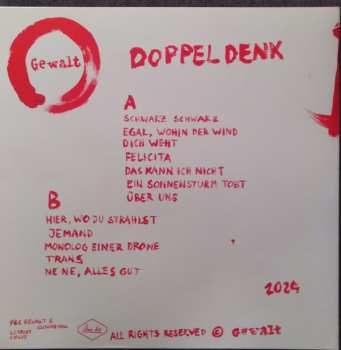 Gewalt
DOPPELDENK
A
SCHWARZ SCHWARZ
EGAL, WOHIN DER WIND
DICH WEHT
FELICITA
DAS KANN ICH NICHT
EIN SONNENSTURM TOBT
ÜBER UNS
B
HIER, WO DU STRAHLST
JEMAND
MONOLOG EINER DRONE
TRANS
NE NE, ALLES GUT
2024
P&C GEWALT &
ALL RIGHTS RESERVED © GEWALT